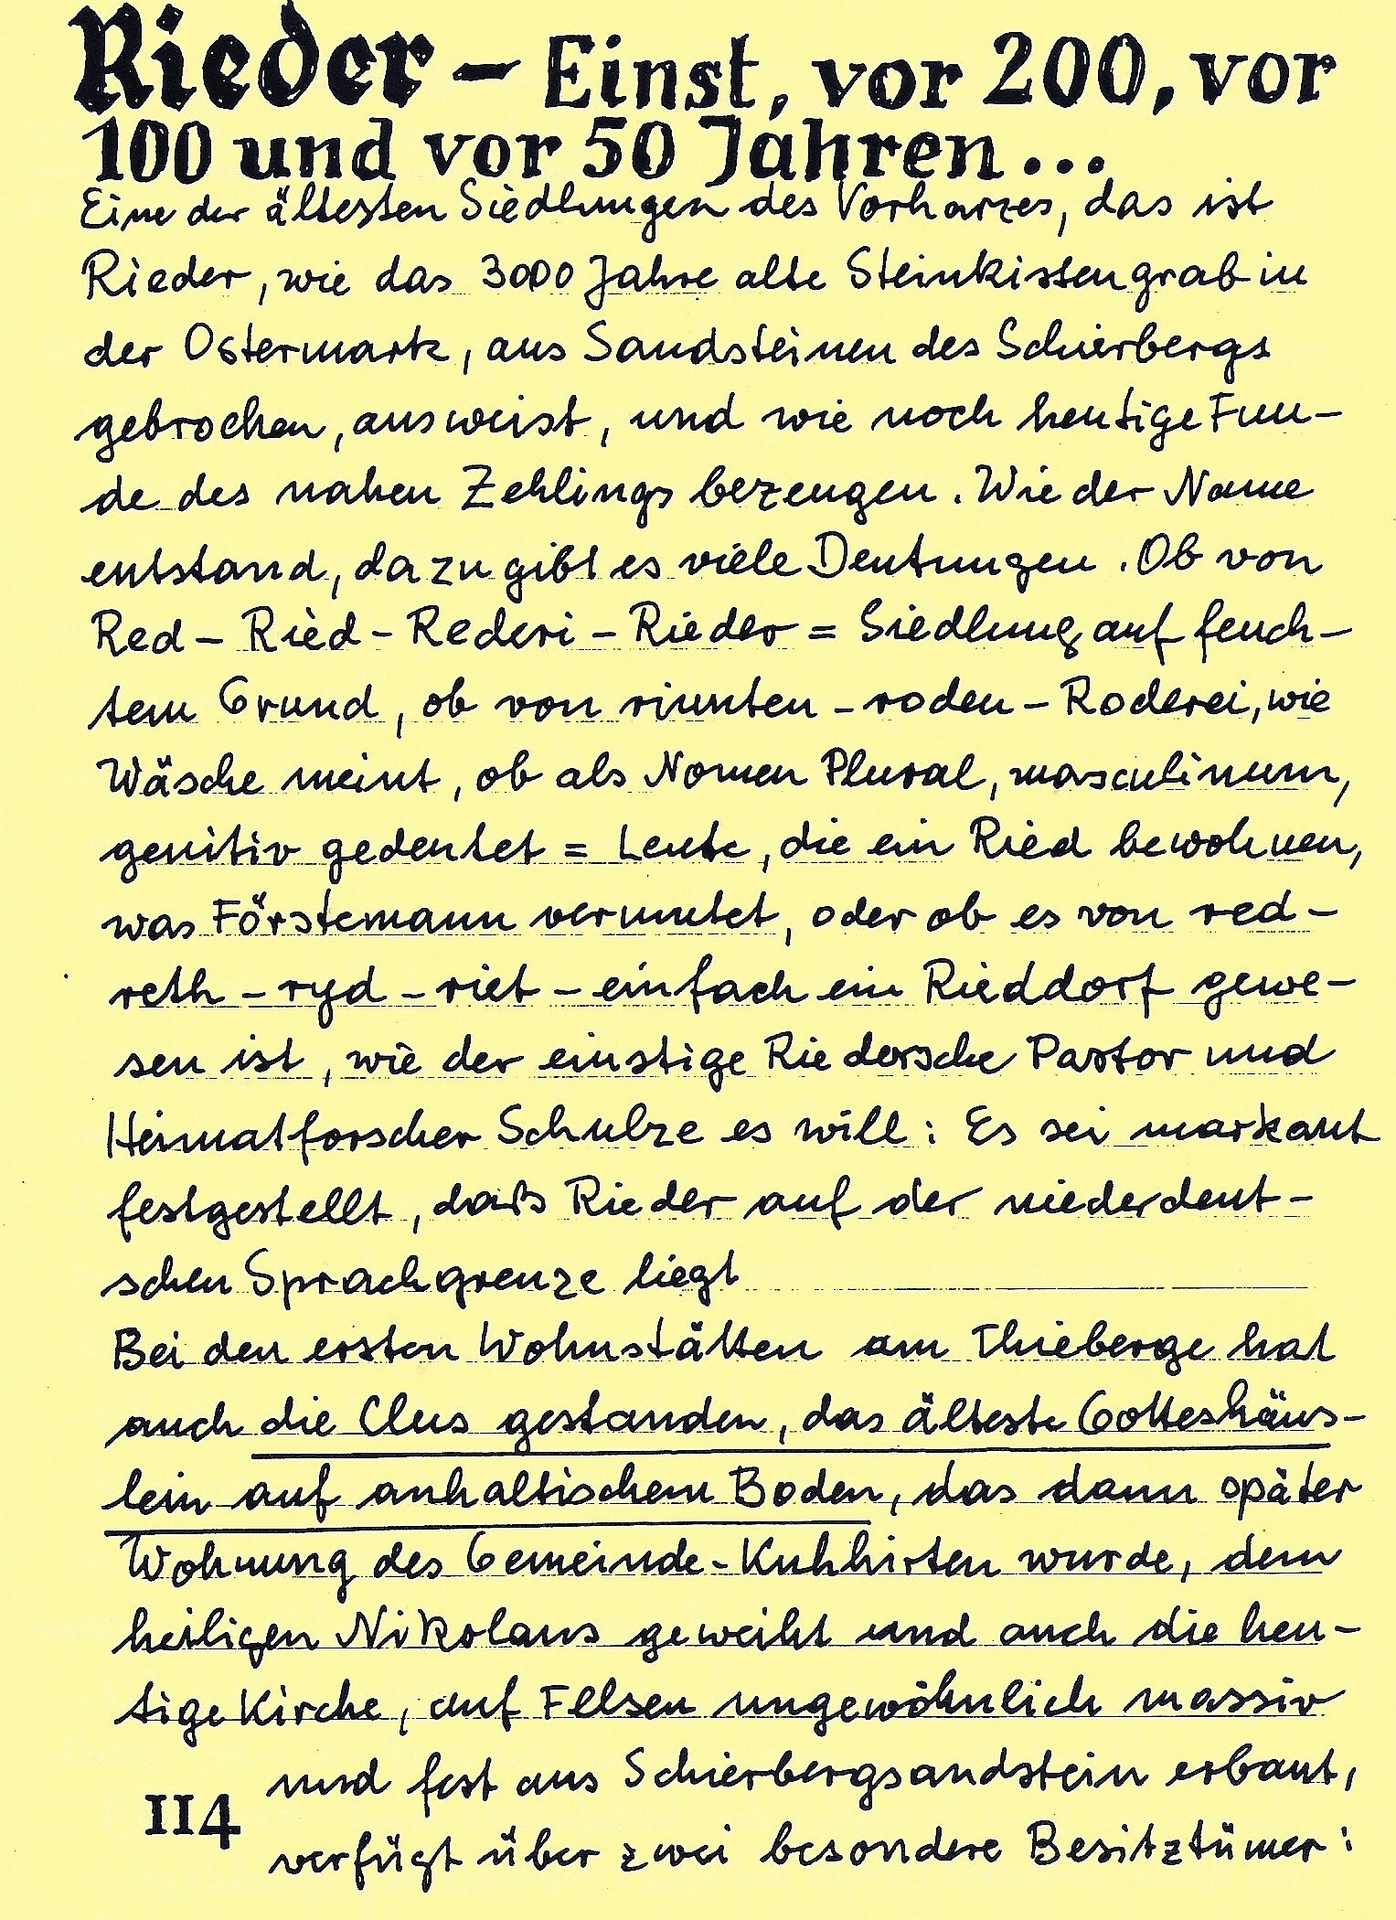 Rieder – Einst, vor 200, vor
100 und vor 50 Jahren...
Eine der ältesten Siedlungen des Vorharzes, das ist
Rieder, wie das 3000 Jahre alte Steinkistengrab in
der Ostermark, aus Sandsteinen des Schierbergs
gebrochen, ausweist, und wie noch heutige Fun-
de des nahen Zehlings bezeugen. Wie der Name
entstand, dazu gibt es viele Deutungen. Ob von
Red – Ried – Rederi – Rieder = Siedlung auf feuch-
tem Grund, ob von – roden – Roderei, wie
Wäsche meint, ob als Nomen Plural, masculinum,
genitiv gedeutet = Leute, die ein Ried bewohnen,
was Förstemann vermutet, oder ob es von red –
reth – ryd – riet – einfach ein Rieddorf gewe-
sen ist, wie der einstige Riedersche Pastor und
Heimatforscher Schulze es will: Es sei markant
festgestellt, daß Rieder auf der niederdeut-
schen Sprachgrenze liegt
Bei den ersten Wohnstätten am Thieberge hat
auch die Clus gestanden, das älteste Gotteshäus-
lein auf anhaltischem Boden, das dann später
Wohnung des Gemeinde-Kuhhirten wurde, dem
heiligen Nikolaus geweiht und auch die heu-
tige Kirche, auf Felsen ungewöhnlich massiv
und fest aus Schierbergsandstein erbaut,
verfügt über zwei besondere Besitztümer:
114